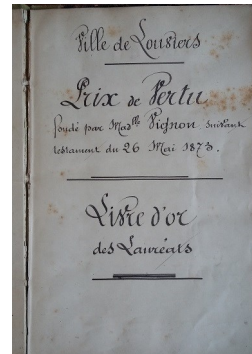 Ville de Louviers
Prix de Vertu
fondé par Mad^lle Pichon suivant
testament du 26 Mai 1873.
Livre d'or
des Lauréats